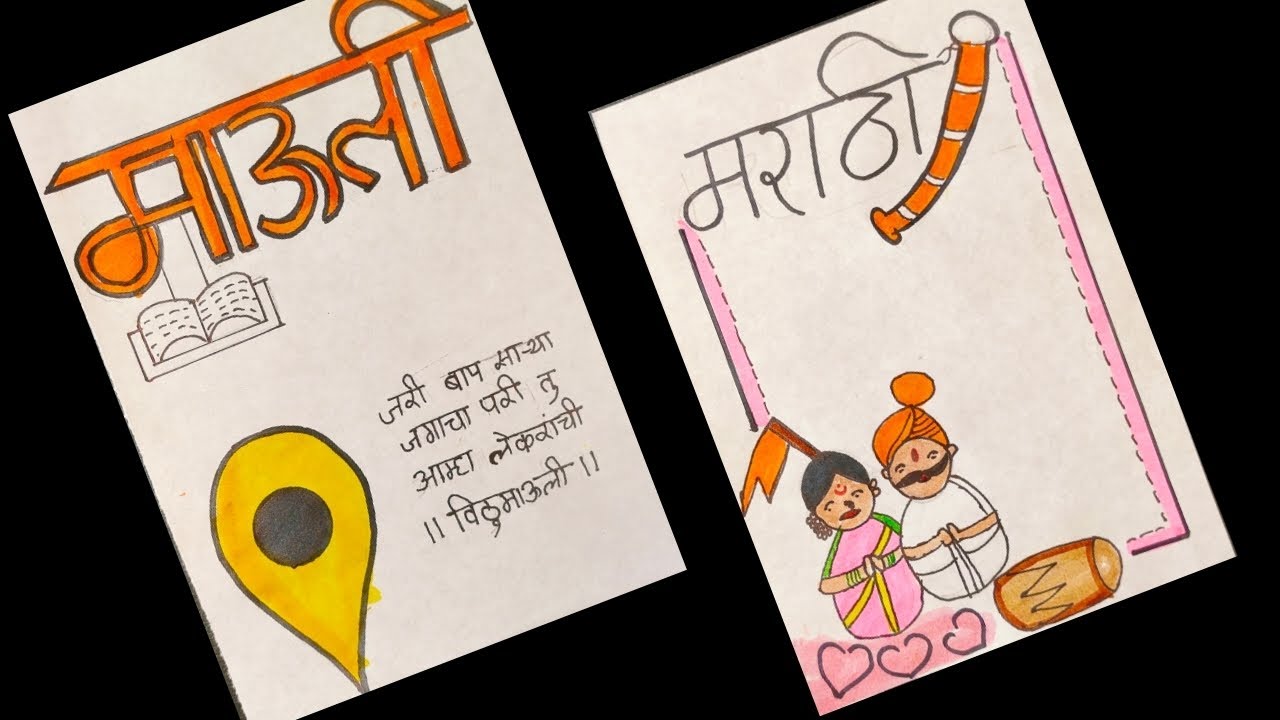 माऊली
जरी बाप साऱ्या
जगाचा परी तु
आम्हा लेकरांची
।। विठुमाऊली ।।
मराठी